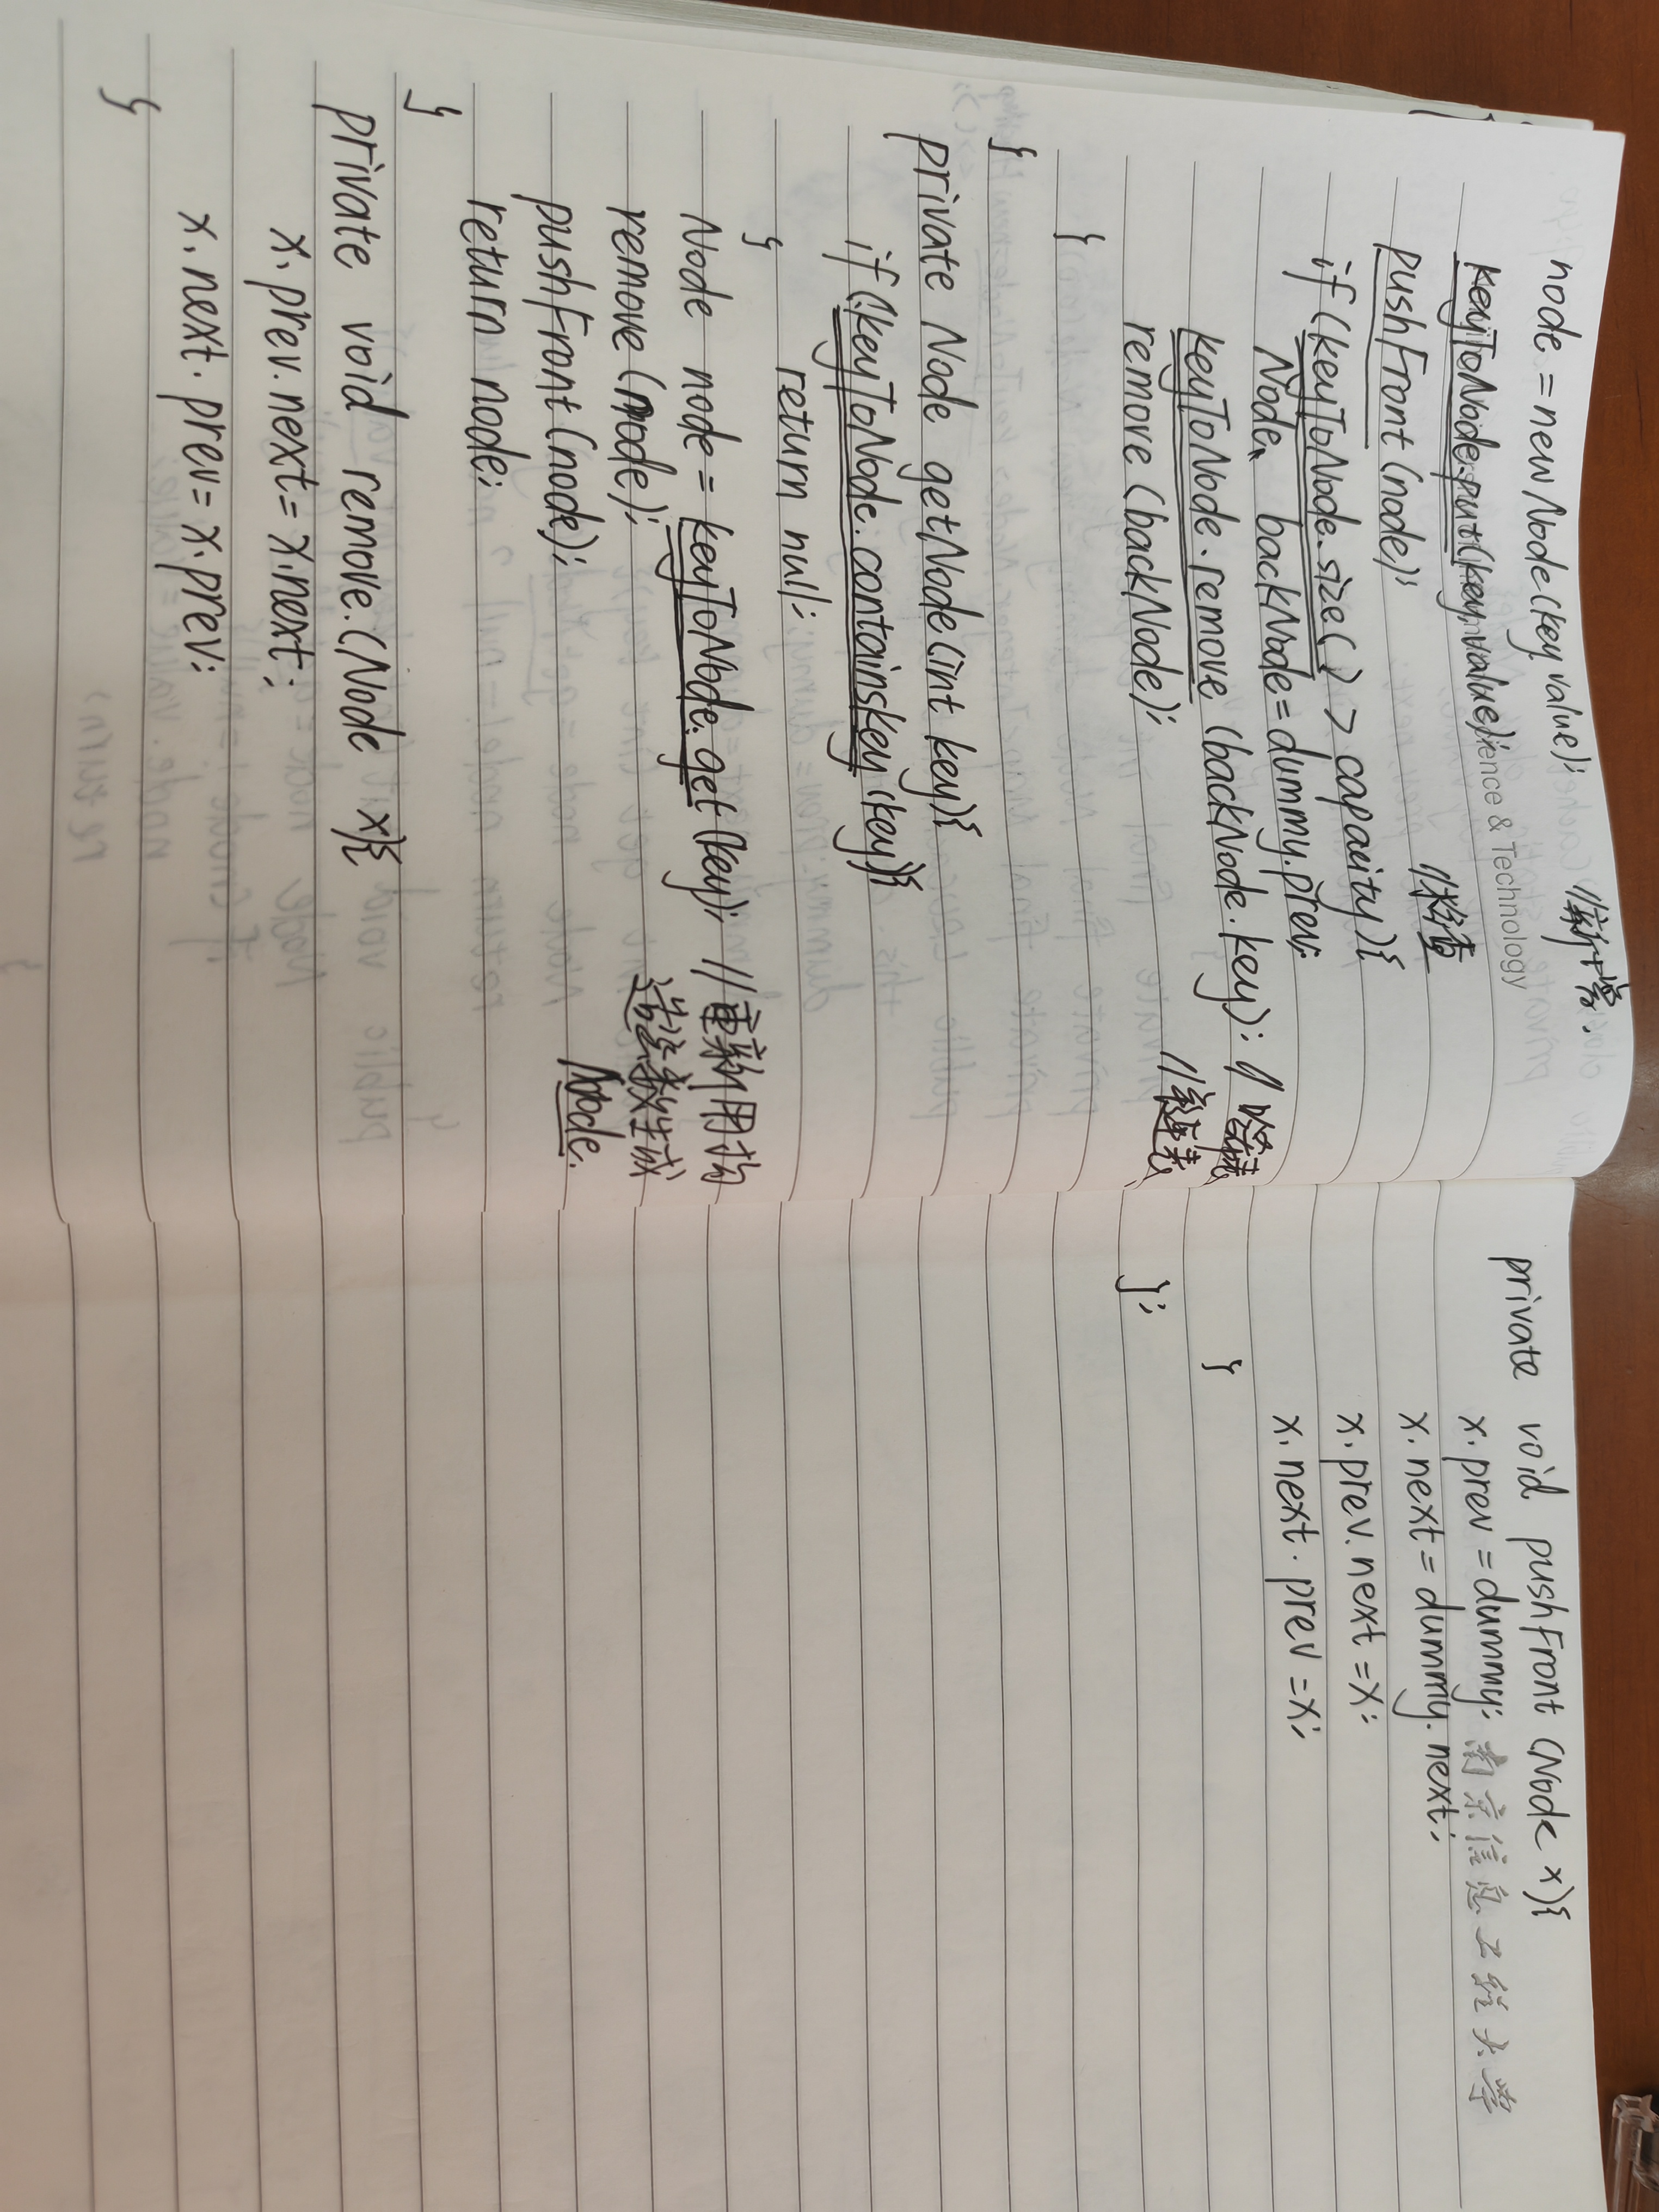 node = new Node(key value); //新增.
keyToNode.put(key, value); ience & Technology
pushFront(node); //检查
if(keyToNode.size() > capaity){
Node backNode = dummy.prev;
keyToNode.remove (backNode.key); //哈希表
remove (backNode); //链表
}
}
private Node getNode(int key){
if(!keyToNode.containskey(key)){
return null;
}
Node node = keyToNode.get(key); //重新用构
remove(node); 造函数生成
pushFront(node); Node.
return node;
}
private void remove.(Node x){
x.prev.next = x.next;
x.next.prev = x.prev;
}
private void pushFront (Node x){
x.prev = dummy; 南京信息工程大学
x.next = dummy.next;
x.prev.next = x;
x.next.prev = x;
}
};